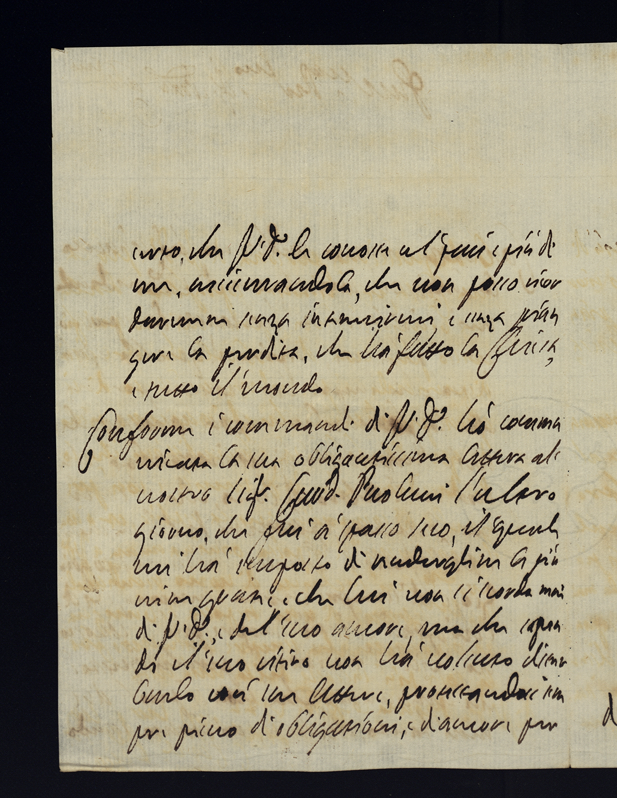 certo, che V.S. la conosca al pari e più di
me, assicurandola, che non posso ricor
darmene senza intenerirmi e senza pian
gere la perdita, che ha fatto la Chiesa,
e tutto il mondo
Conforme i commandi di V.S. hò comma
nicata la sua obligantissima lettera al
nostro Sig. Card. Paolucci l'altro
giorno, che qui a passo suo, il quale
mi hà imposto di rendergline le più
vive grazie, e che lui non si scorda mai
di V.S., e dell'suo amore, ma che sapen
do il suo ritiro non hà voluto distur
barlo con sue lettere, protestandosi sem
pre pieno di obligazioni, e di amore per